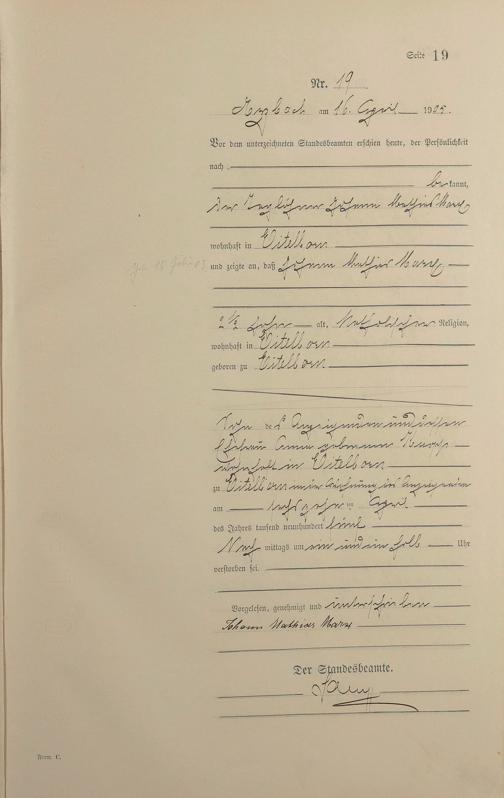 Seite 19
Nr. 19
Arzbach am 16. April 1905.
Vor dem unterzeichneten Standesbeamten erschien heute, der Persönlichkeit
nach
be kannt,
der Taglöhner Johann Mathias Marx
wohnhaft in Eitelborn
und zeigte an, daß Johann Mathias Marx
geb 15 Juli 03
2 1/2 Jahre alt, katholischer Religion,
wohnhaft in Eitelborn
geboren zu Eitelborn
Sohn des Anzeigenden und dessen
Ehefrau Anna geborenen
wohnhaft in Eitelborn
zu Eitelborn in der Wohnung des Anzeigenden
am sechszehnten April
des Jahres tausend neunhundert fünf
Nach mittags um ein und ein halb Uhr
verstorben sei.
Vorgelesen, genehmigt und unterschrieben
Johann Mathias Marx
Der Standesbeamte.
Form. C.